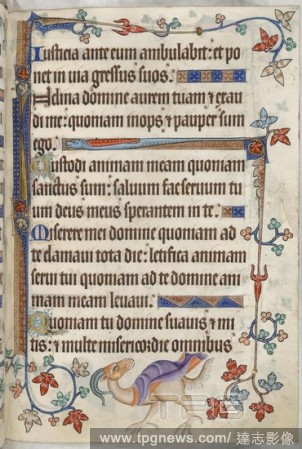 Iusticia ante eum ambulabit: et po
net in uia gressus suos.
Inclina domine aurem tuam & exau
di me: quoniam inops & pauper sum
ego.
Custodi animam meam quoniam
sanctus sum: saluum fac seruum tu
um deus meus sperantem in te.
Miserere mei domine quoniam ad
te clamaui tota die: letifica animam
serui tui quoniam ad te domine ani
mam meam leuaui.
Quoniam tu domine suauis & mi
tis: & multe misericordie omnibus
www.tpgnews.com/ 達志影像